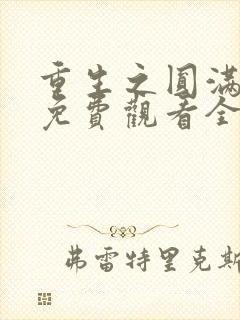 重生之圓滿
免費觀看全
弗雷特里克斯